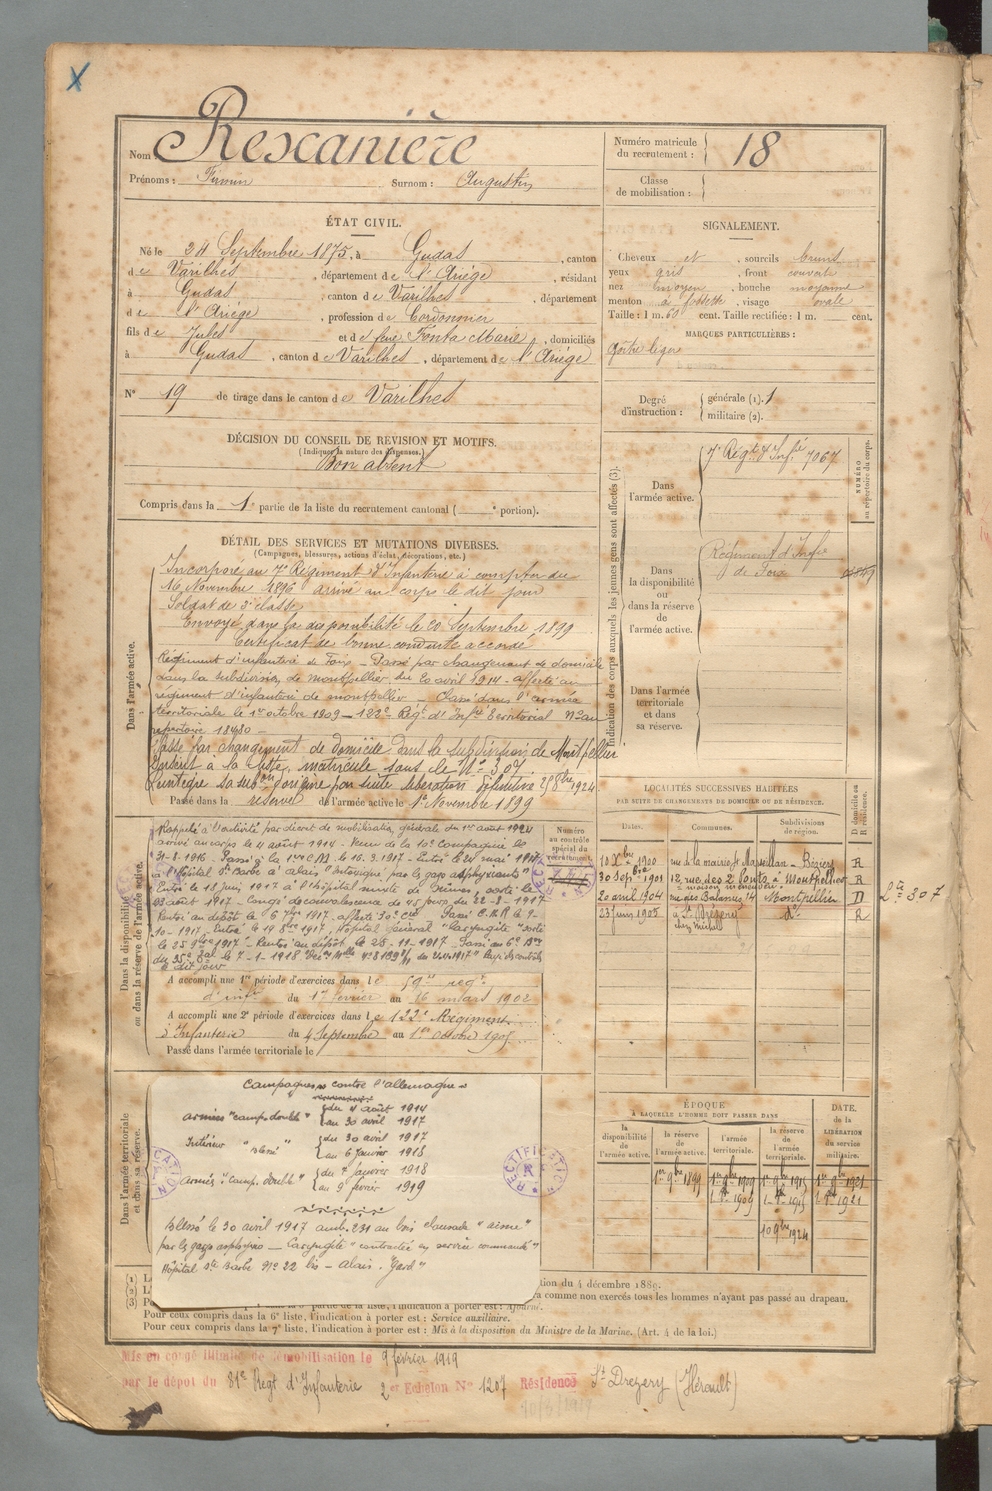 Nom Rescanière
Prénoms : Firmin Surnom : Augustin
Numéro matricule du recrutement : 18
Classe de mobilisation :
ÉTAT CIVIL.
Né le 24 Septembre 1875, à Gudas, canton
de Varilhes, département de l'Ariège, résidant
à Gudas, canton de Varilhes, département
de l'Ariège, profession de Cordonnier
fils de Jules et de feue Fonta Marie, domiciliés
à Gudas, canton de Varilhes, département de l'Ariège
N° 19 de tirage dans le canton de Varilhes
SIGNALEMENT.
Cheveux et sourcils bruns
yeux gris, front couvert
nez moyen, bouche moyenne
menton à fossette, visage ovale
Taille : 1 m. 60 cent. Taille rectifiée : 1 m. cent.
MARQUES PARTICULIÈRES :
Goitre léger
Degré d'instruction : générale (1). 1
militaire (2).
DÉCISION DU CONSEIL DE REVISION ET MOTIFS.
(Indiquer la nature des dispenses.)
Bon absent
Compris dans la 1e partie de la liste du recrutement cantonal ( e portion).
DÉTAIL DES SERVICES ET MUTATIONS DIVERSES.
(Campagnes, blessures, actions d'éclat, décorations, etc.)
Dans l'armée active.
Incorporé au 7e Régiment d'Infanterie à compter du
16 Novembre 1896 arrivé au corps le dit jour
Soldat de 2e classe
Envoyé dans la disponibilité le 20 Septembre 1899
Certificat de bonne conduite accordé
Régiment d'infanterie de Foix - Passé par changement de domicile
dans la subdivision de montpellier du 20 avril 1914 - affecté au
régiment d'infanterie de montpellier - Classé dans l'armée
territoriale le 1er octobre 1909 - 122e Régt d'Infie Territorial N° au
repertoire 18480 -
Passé par changement de domicile dans la subdivision de Montpellier
Inscrit à la liste matricule sous le N° 307
Réintégré sa subon d'origine par suite libération définitive 25 8bre 1924
Passé dans la réserve de l'armée active le 1er Novembre 1899
Indication des corps auxquels les jeunes gens sont affectés (3).
NUMÉRO au répertoire du corps.
Dans l'armée active.
7e Régt d'Infie 7067
Dans la disponibilité ou dans la réserve de l'armée active.
Régiment d'Infie de Foix
Dans l'armée territoriale et dans sa réserve.
Dans la disponibilité ou dans la réserve de l'armée active.
Rappelé à l'activité par décret de mobilisation générale du 1er août 1914
arrivé au corps le 4 août 1914
31-8-1916 - Passé à la 1re C.M. le 16.9.1917 - Entré le 24 mai 1917
à l'Hôpital Ste Barbe à Alais "Intoxiqué par les gaz asphyxiants"
Entré le 18 juin 1917 à l'Hôpital mixte de sorti le
03 août 1917 - Congé de convalescence de 45 jours du 22-8-1917
Rentré au dépôt le 6 7bre 1917 affecté 30e Cie Passé C.H.R le 9-
10-1917 Entré le 19 8bre 1917, Hôpital général "Laryngite" sorti
le 25 9bre 1917 - Rentré au dépôt le 25-11-1917 - Passé au 6e Bon
du 35e le 7-1-1918
le dit jour
Numéro au contrôle spécial du recrutement.
A accompli une 1re période d'exercices dans le 59e régt
d'infie du 17 février au 16 mars 1902
A accompli une 2e période d'exercices dans le 122e Régiment
d'Infanterie du 4 Septembre au 1er Octobre 1905
Passé dans l'armée territoriale le
LOCALITÉS SUCCESSIVES HABITÉES
PAR SUITE DE CHANGEMENTS DE DOMICILE OU DE RÉSIDENCE.
Dates. Communes. Subdivisions de région. D domicile ou R résidence.
10 Xbre 1900 rue à la mairie Marseillan - Béziers R
30 Sepbre 1901 12 rue des 2 Ponts à Montpellier R
20 avril 1904 rue des Balances 14 Montpellier D
23 juin 1905 à St Drezery do R
Lte = 307
Dans l'armée territoriale et dans sa réserve.
Campagnes contre l'allemagne
armées "camp. double" du 4 août 1914
au 30 avril 1917
Intérieur "Blessé" du 30 avril 1917
au 6 janvier 1918
armées "Camp. double" du 7 janvier 1918
au 9 février 1919
Blessé le 30 avril 1917 amb. 231 au bois "aisne"
par les gaz asphyxiés - Laryngite "contractée en service commandé"
Hôpital Ste Barbe N° 22 bis - Alais. Gard"
RECTIFICATION
ÉPOQUE À LAQUELLE L'HOMME DOIT PASSER DANS
la disponibilité de l'armée active. la réserve de l'armée active. l'armée territoriale. la réserve de l'armée territoriale.
DATE. de la LIBÉRATION du service militaire.
1er 9bre 1899 1er 9bre 1909 1er 9bre 1915 1er 9bre 1921
1er 8bre 1909 1er 8bre 1915 1er 8bre 1921
10 9bre 1924
(1)
(2)
(3)
tion du 4 décembre 1889.
ra comme non exercés tous les hommes n'ayant pas passé au drapeau.
partie de la liste, l'indication à porter est : Ajourné.
Pour ceux compris dans la 6e liste, l'indication à porter est : Service auxiliaire.
Pour ceux compris dans la 7e liste, l'indication à porter est : Mis à la disposition du Ministre de la Marine. (Art. 4 de la loi.)
Mis en congé illimité de démobilisation le 9 février 1919
par le dépôt du 81e Regt d'Infanterie 2er Echelon N° 1207 Résidence St Drezery (Hérault)